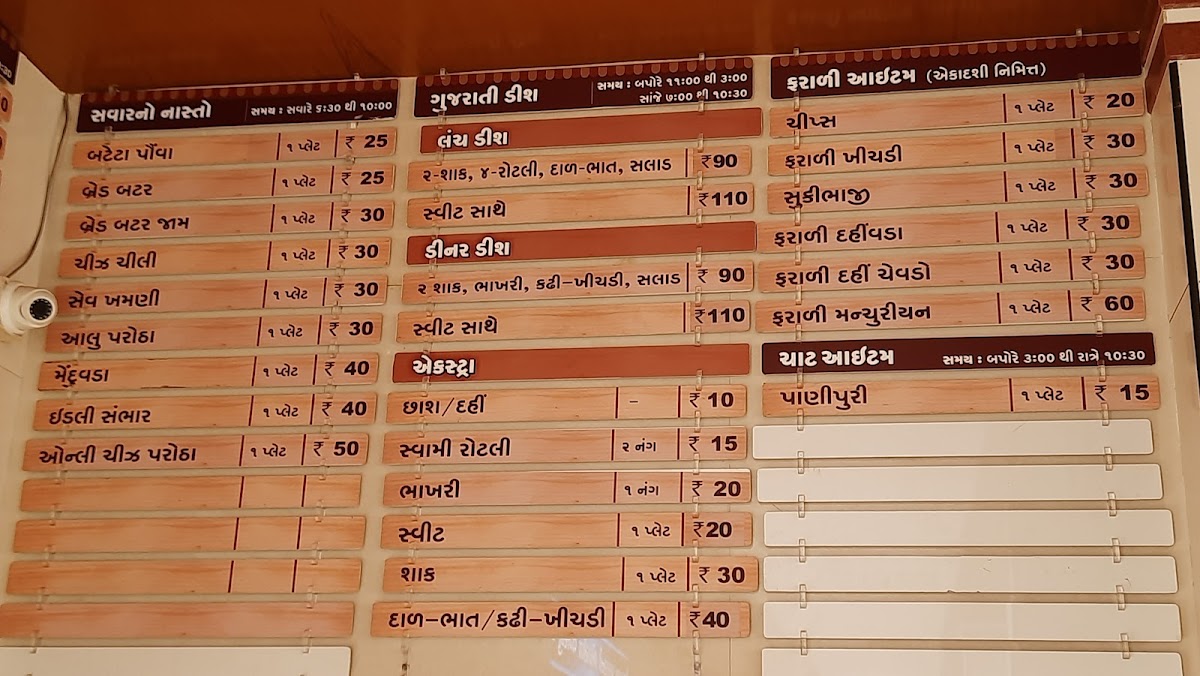 સવારનો નાસ્તો સમય : સવારે ૬:૩૦ થી ૧૦:૦૦
બટેટા પૌંવા ૧ પ્લેટ ₹ 25
બ્રેડ બટર ૧ પ્લેટ ₹ 25
બ્રેડ બટર જામ ૧ પ્લેટ ₹ 30
ચીઝ ચીલી ૧ પ્લેટ ₹ 30
સેવ ખમણી ૧ પ્લેટ ₹ 30
આલુ પરોઠા ૧ પ્લેટ ₹ 30
મેંદુવડા ૧ પ્લેટ ₹ 40
ઈડલી સંભાર ૧ પ્લેટ ₹ 40
ઓન્લી ચીઝ પરોઠા ૧ પ્લેટ ₹ 50
ગુજરાતી ડીશ સમય : બપોરે ૧૧:૦૦ થી ૩:૦૦
સાંજે ૭:૦૦ થી ૧૦:૩૦
લંચ ડીશ
૨-શાક, ૪-રોટલી, દાળ-ભાત, સલાડ ₹90
સ્વીટ સાથે ₹110
ડીનર ડીશ
૨ શાક, ભાખરી, કઢી-ખીચડી, સલાડ ₹ 90
સ્વીટ સાથે ₹110
એકસ્ટ્રા
છાશ/દહીં - ₹ 10
સ્વામી રોટલી ૨ નંગ ₹ 15
ભાખરી ૧ નંગ ₹ 20
સ્વીટ ૧ પ્લેટ ₹20
શાક ૧ પ્લેટ ₹ 30
દાળ-ભાત/કઢી-ખીચડી ૧ પ્લેટ ₹40
ફરાળી આઈટમ (એકાદશી નિમિત્ત)
ચીપ્સ ૧ પ્લેટ ₹ 20
ફરાળી ખીચડી ૧ પ્લેટ ₹ 30
સુકીભાજી ૧ પ્લેટ ₹ 30
ફરાળી દહીંવડા ૧ પ્લેટ ₹ 30
ફરાળી દહીં ચેવડો ૧ પ્લેટ ₹ 30
ફરાળી મન્ચુરીયન ૧ પ્લેટ ₹ 60
ચાટ આઈટમ સમય : બપોરે ૩:૦૦ થી રાત્રે ૧૦:૩૦
પાણીપુરી ૧ પ્લેટ ₹ 15